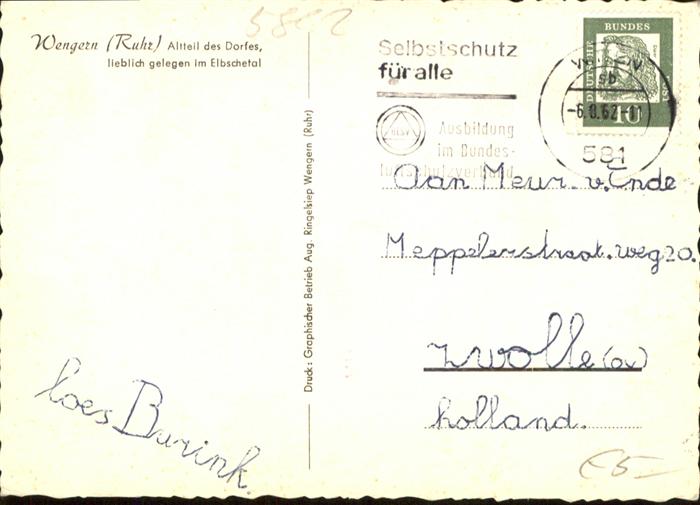 5802
Wengern (Ruhr) Altteil des Dorfes,
lieblich gelegen im Elbschetal
Druck: Graphischer Betrieb Aug. Ringelsiep Wengern (Ruhr)
Selbstschutz
für alle
BLSV
Ausbildung
im Bundes-
luftschutzverband
WITTEN
sb
-6.8.62-11
581
DEUTSCHE
BUNDES
POST
10
Aan Meur. v. Ende
Meppelerstraat.weg 20.
zwolle (ov)
holland.
loes Burink.
€5-